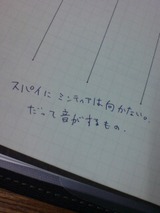 スパイにミンティアは向かない。
だって音がするもの.